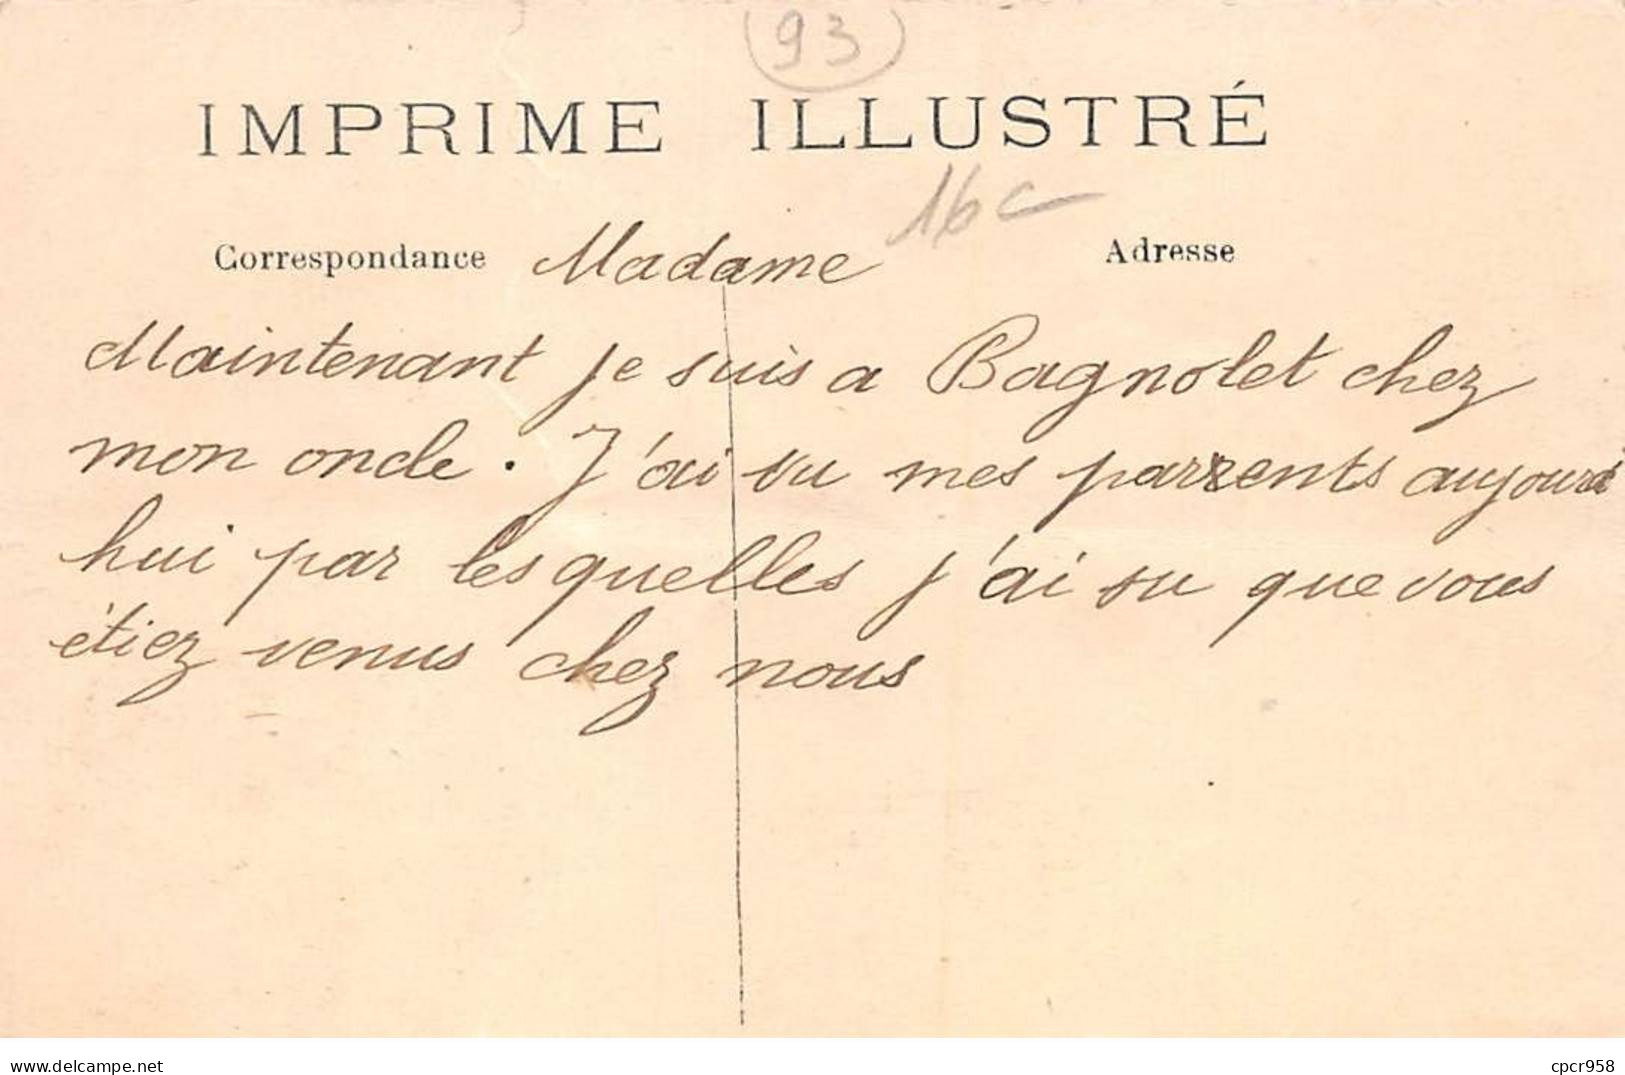 93
IMPRIME ILLUSTRÉ
16 c
Correspondance Madame Adresse
Maintenant je suis a Bagnolet chez
mon oncle. J'ai vu mes parents aujourd
hui par lesquelles j'ai su que vous
étiez venus chez nous
delcampe.net
cpcr958